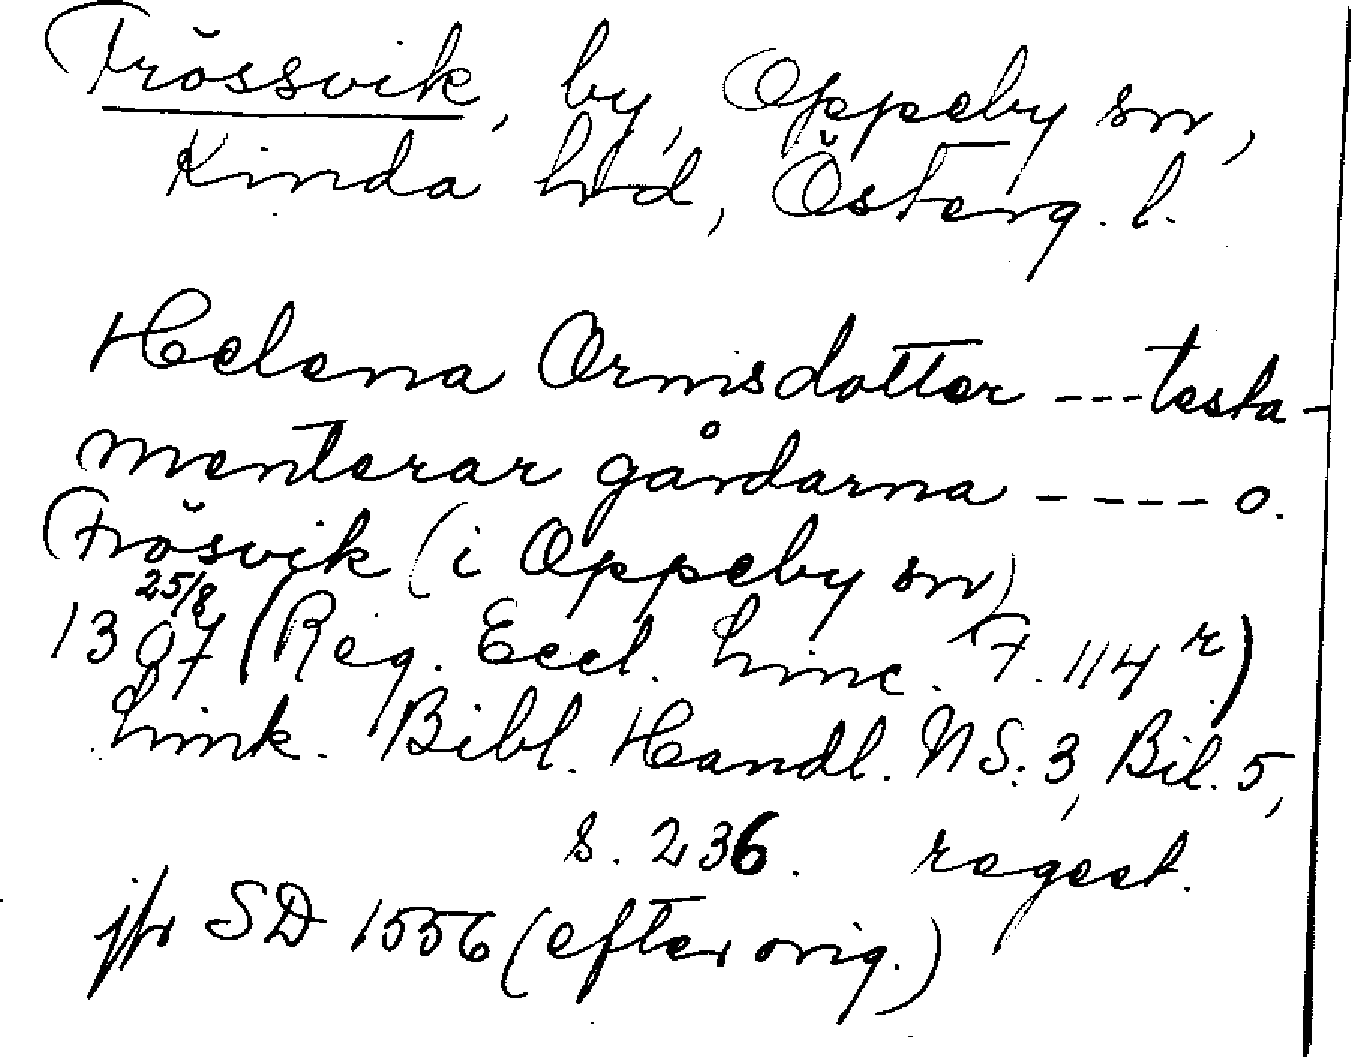 Frössvik, by, Oppeby sn,
Kinda hrd, Österg. l.
Helena Ormsdotter --- testa-
menterar gårdarna ---- o.
Frösvik (i Oppeby sn)
25/8
1307 (Reg. Eccl. Linc. F. 114 r)
Link. Bibl. Handl. NS: 3, Bil. 5,
s. 236. regest.
jfr SD 1556 (efter orig.)